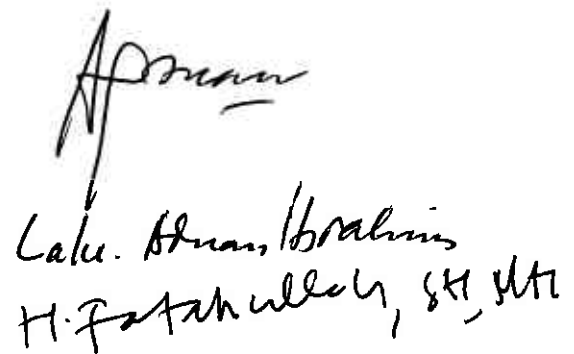 Lalu. Adnan Ibrahim
H. Fatahullah, SH, MH